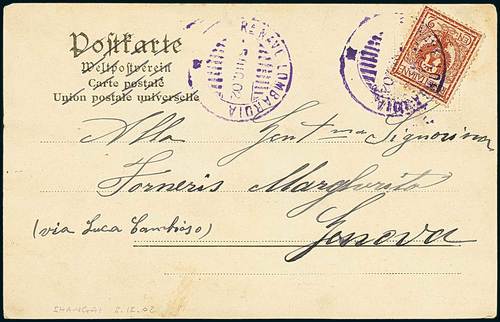 Postkarte
Weltpostverein
Carte postale
Union postale universelle
R. NAVE LOMBARDIA
Alla Gent ma Signorina
Forneris Margherita
(via Luca Cambiaso)
Genova
SHANGAI 8.12.02